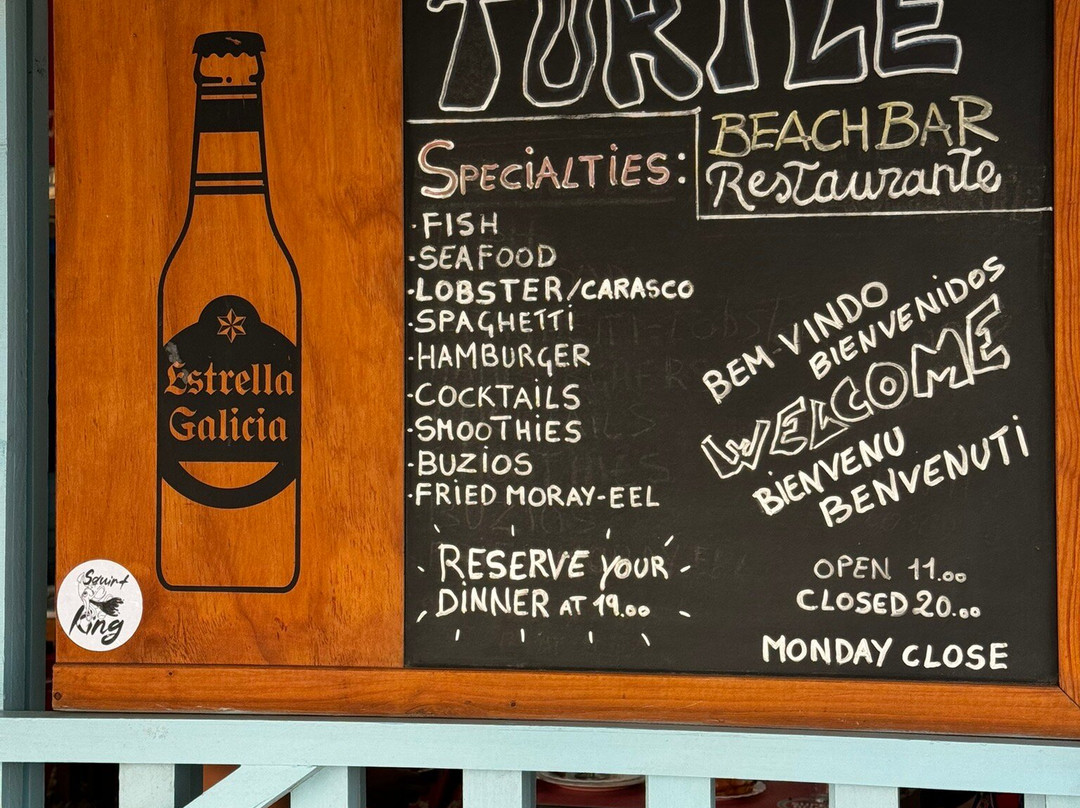 TURTLE
BEACH BAR
Restaurante
SPECIALTIES:
·FISH
·SEAFOOD
·LOBSTER/CARASCO
·SPAGHETTI
·HAMBURGER
·COCKTAILS
·SMOOTHIES
·BUZIOS
·FRIED MORAY-EEL
RESERVE YOUR
DINNER AT 19.00
BEM VINDO
BIENVENIDOS
WELCOME
BIENVENU
BENVENUTI
OPEN 11.00
CLOSED 20.00
MONDAY CLOSE
Estrella
Galicia
Squirt
King